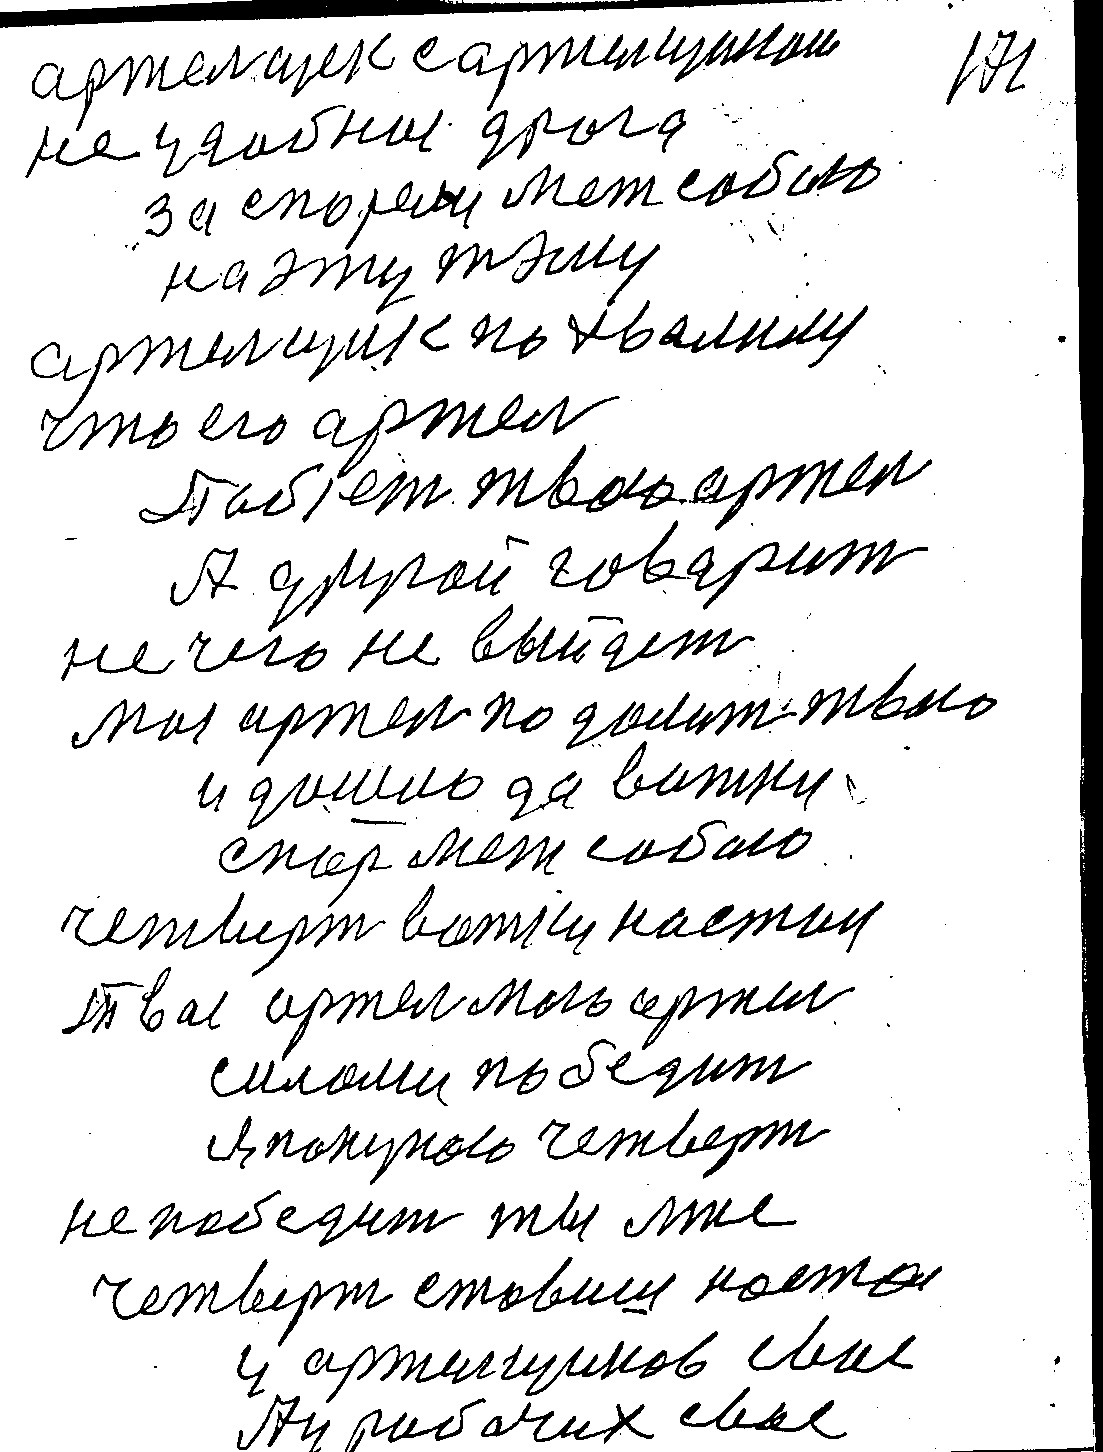 артелщек с артелщиком 171
не удобное дрога
заспорели меж собою
на эту тэму
артелщик похвалилу
что его артел
Побіет твою артел
А другой говарит
не чего не выйдет
моя артел подолит твою
и дошло да вотки
спор меж собою
четверт вотки настои
Твое артел мою артел
силоми победит
Я покупою четверт
не победит ты мне
четверт ставиш настои
у артелщиков свое
А у рабочих свое